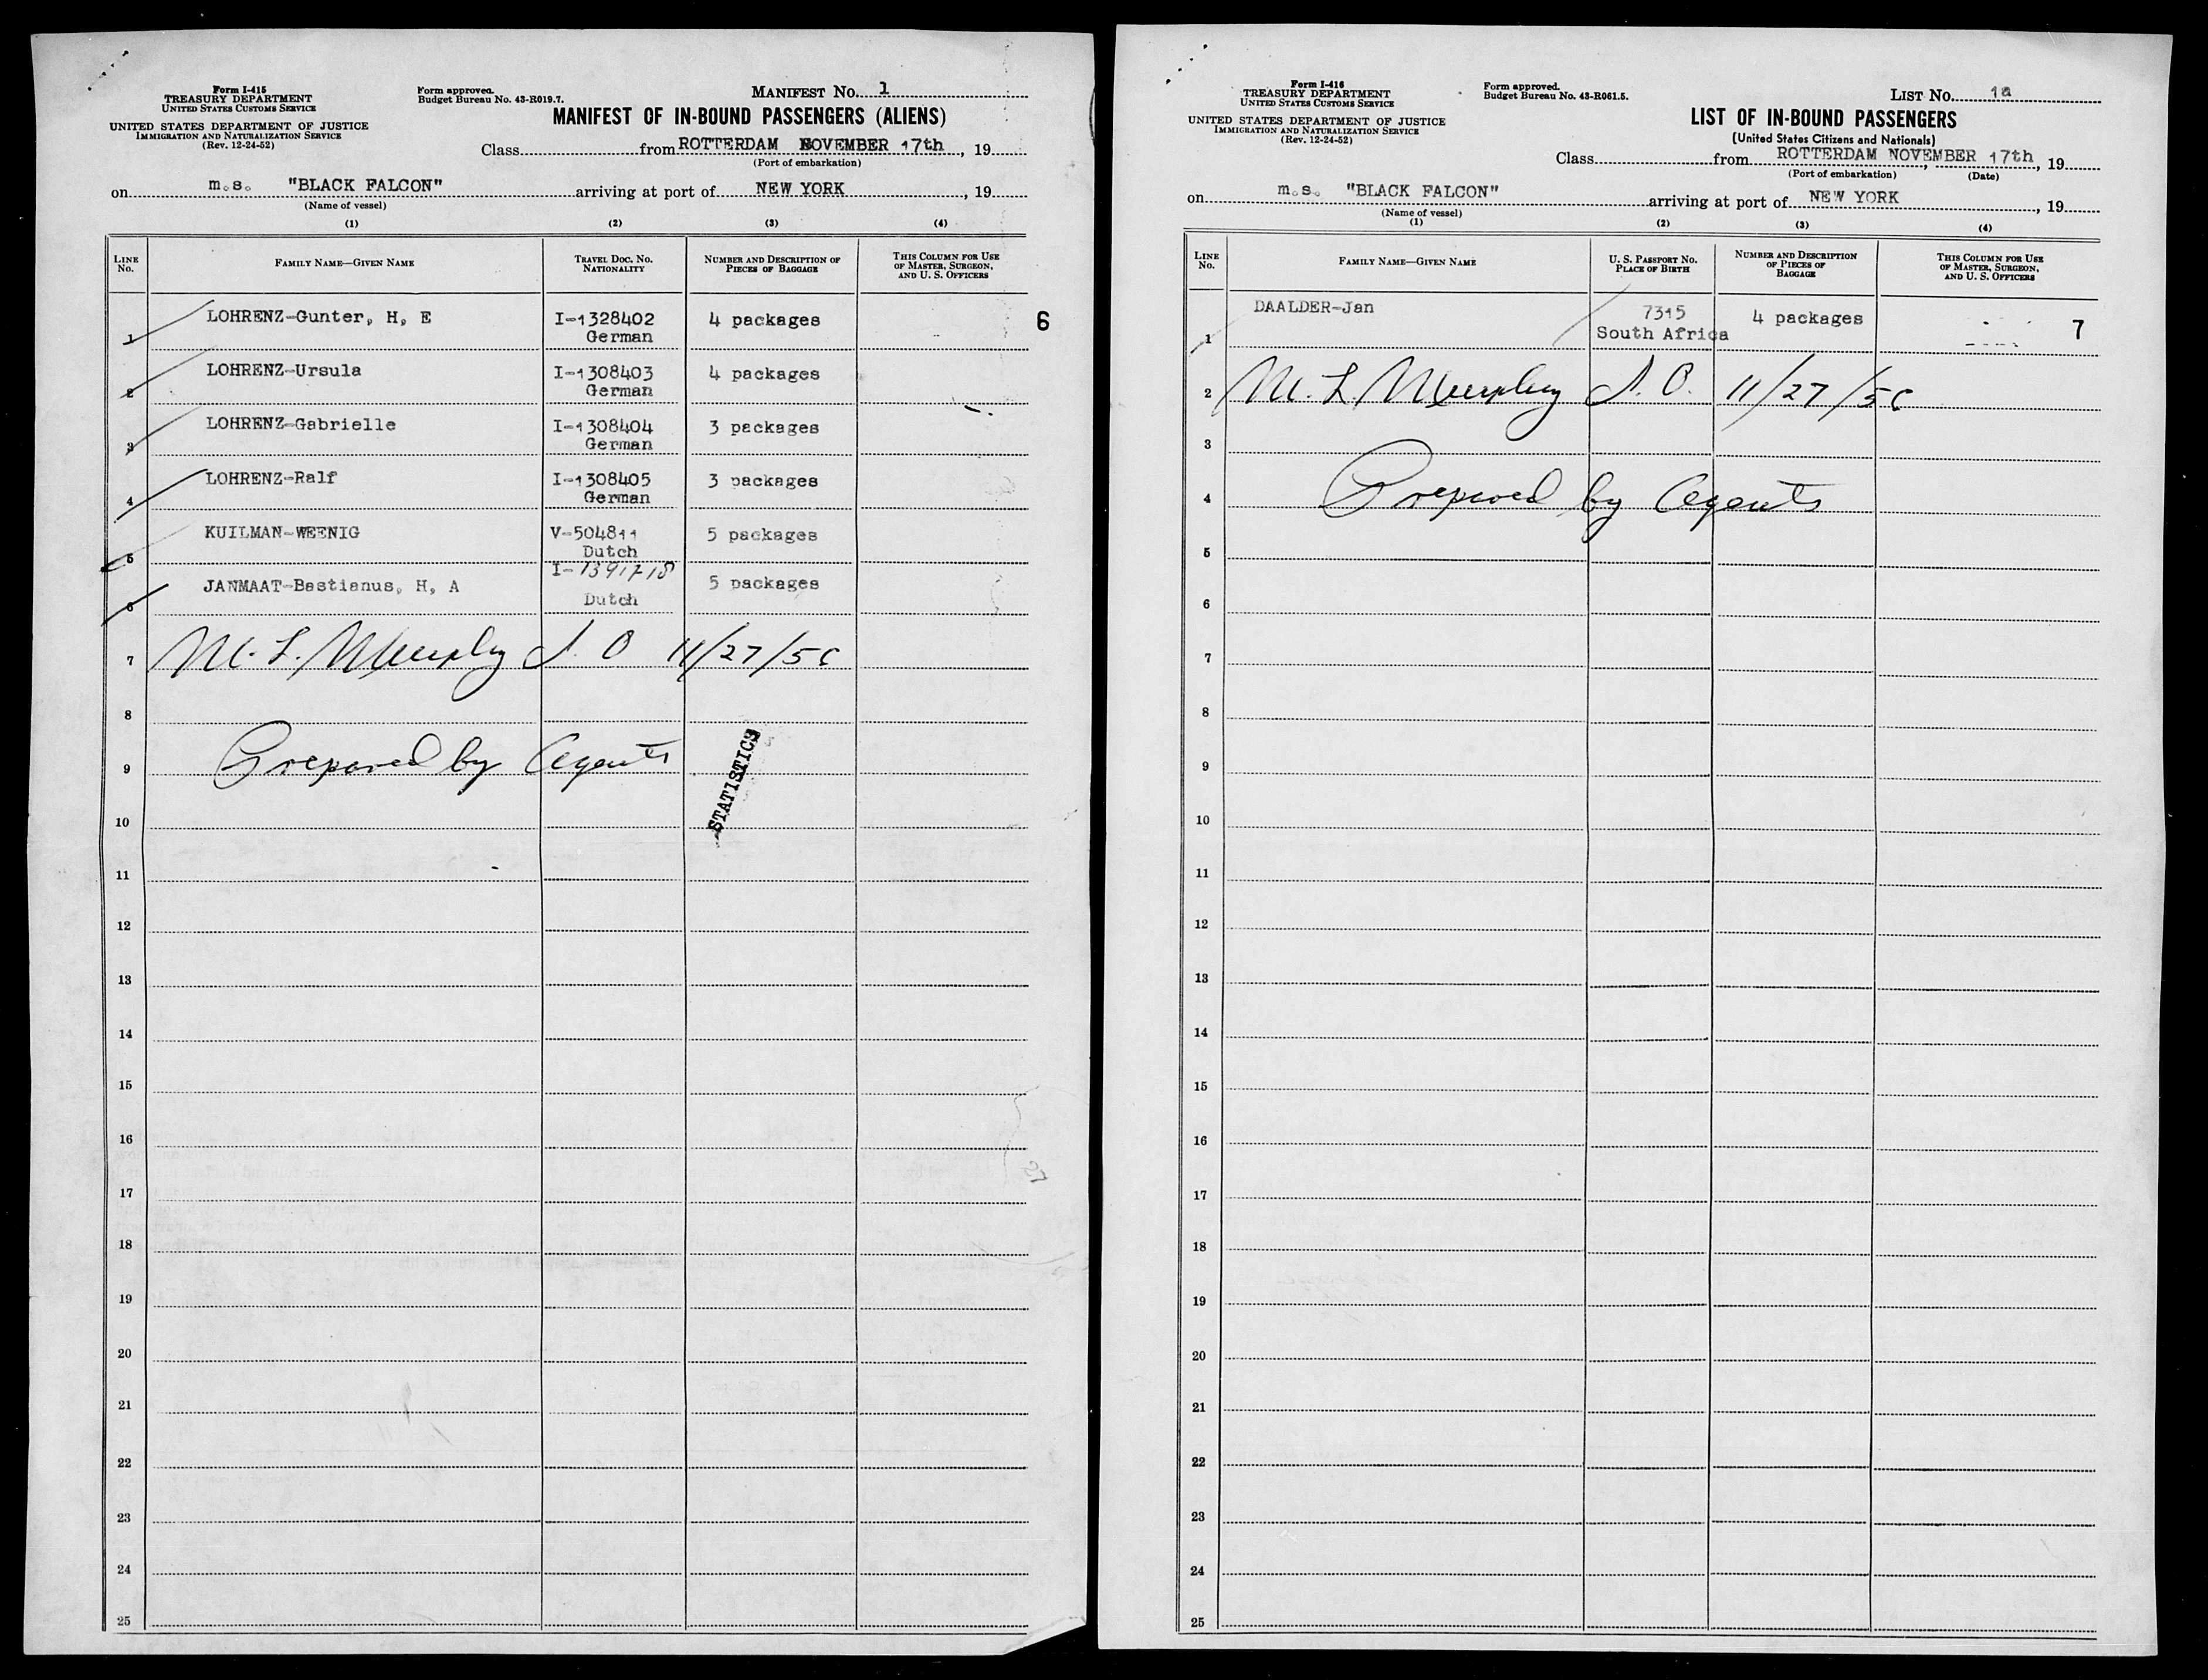 Form I-415
TREASURY DEPARTMENT
UNITED STATES CUSTOMS SERVICE
UNITED STATES DEPARTMENT OF JUSTICE
IMMIGRATION AND NATURALIZATION SERVICE
(Rev. 12-24-52)
Form approved.
Budget Bureau No. 43-R019.7.
MANIFEST No. 1
MANIFEST OF IN-BOUND PASSENGERS (ALIENS)
Class from ROTTERDAM NOVEMBER 17th, 19
(Port of embarkation)
on m.s. "BLACK FALCON" arriving at port of NEW YORK, 19
(Name of vessel)
(1) (2) (3) (4)
LINE No. FAMILY NAME—GIVEN NAME TRAVEL DOC. NO. NATIONALITY NUMBER AND DESCRIPTION OF PIECES OF BAGGAGE THIS COLUMN FOR USE OF MASTER, SURGEON, AND U. S. OFFICERS
1 LOHRENZ-Gunter, H, E I-1328402 German 4 packages 6
2 LOHRENZ-Ursula I-1308403 German 4 packages
3 LOHRENZ-Gabrielle I-1308404 German 3 packages
4 LOHRENZ-Ralf I-1308405 German 3 packages
5 KUILMAN-WEENIG V-504811 Dutch 5 packages
6 JANMAAT-Bastianus, H, A I-1391718 Dutch 5 packages
7 M. L. Murphy I. O 11/27/56
8
9 Prepared by Agents
STATISTICS
10
11
12
13
14
15
16
17
18
19
20
21
22
23
24
25
Form I-416
TREASURY DEPARTMENT
UNITED STATES CUSTOMS SERVICE
UNITED STATES DEPARTMENT OF JUSTICE
IMMIGRATION AND NATURALIZATION SERVICE
(Rev. 12-24-52)
Form approved.
Budget Bureau No. 43-R061.5.
LIST No. 1a
LIST OF IN-BOUND PASSENGERS
(United States Citizens and Nationals)
Class from ROTTERDAM NOVEMBER 17th, 19
(Port of embarkation) (Date)
on m.s. "BLACK FALCON" arriving at port of NEW YORK, 19
(Name of vessel)
(1) (2) (3) (4)
LINE No. FAMILY NAME—GIVEN NAME U. S. PASSPORT NO. PLACE OF BIRTH NUMBER AND DESCRIPTION OF PIECES OF BAGGAGE THIS COLUMN FOR USE OF MASTER, SURGEON, AND U. S. OFFICERS
1 DAALDER-Jan 7315 South Africa 4 packages 7
2 M. L. Murphy I. O. 11/27/56
3
4 Prepared by Agents
5
6
7
8
9
10
11
12
13
14
15
16
17
18
19
20
21
22
23
24
25